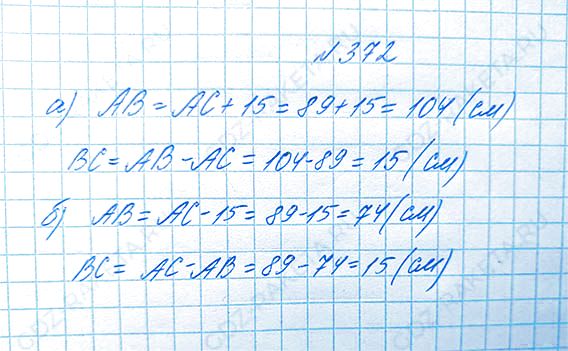 №372
а) AB = AC + 15 = 89 + 15 = 104 (см)
BC = AB - AC = 104 - 89 = 15 (см)
б) AB = AC - 15 = 89 - 15 = 74 (см)
BC = AC - AB = 89 - 74 = 15 (см)